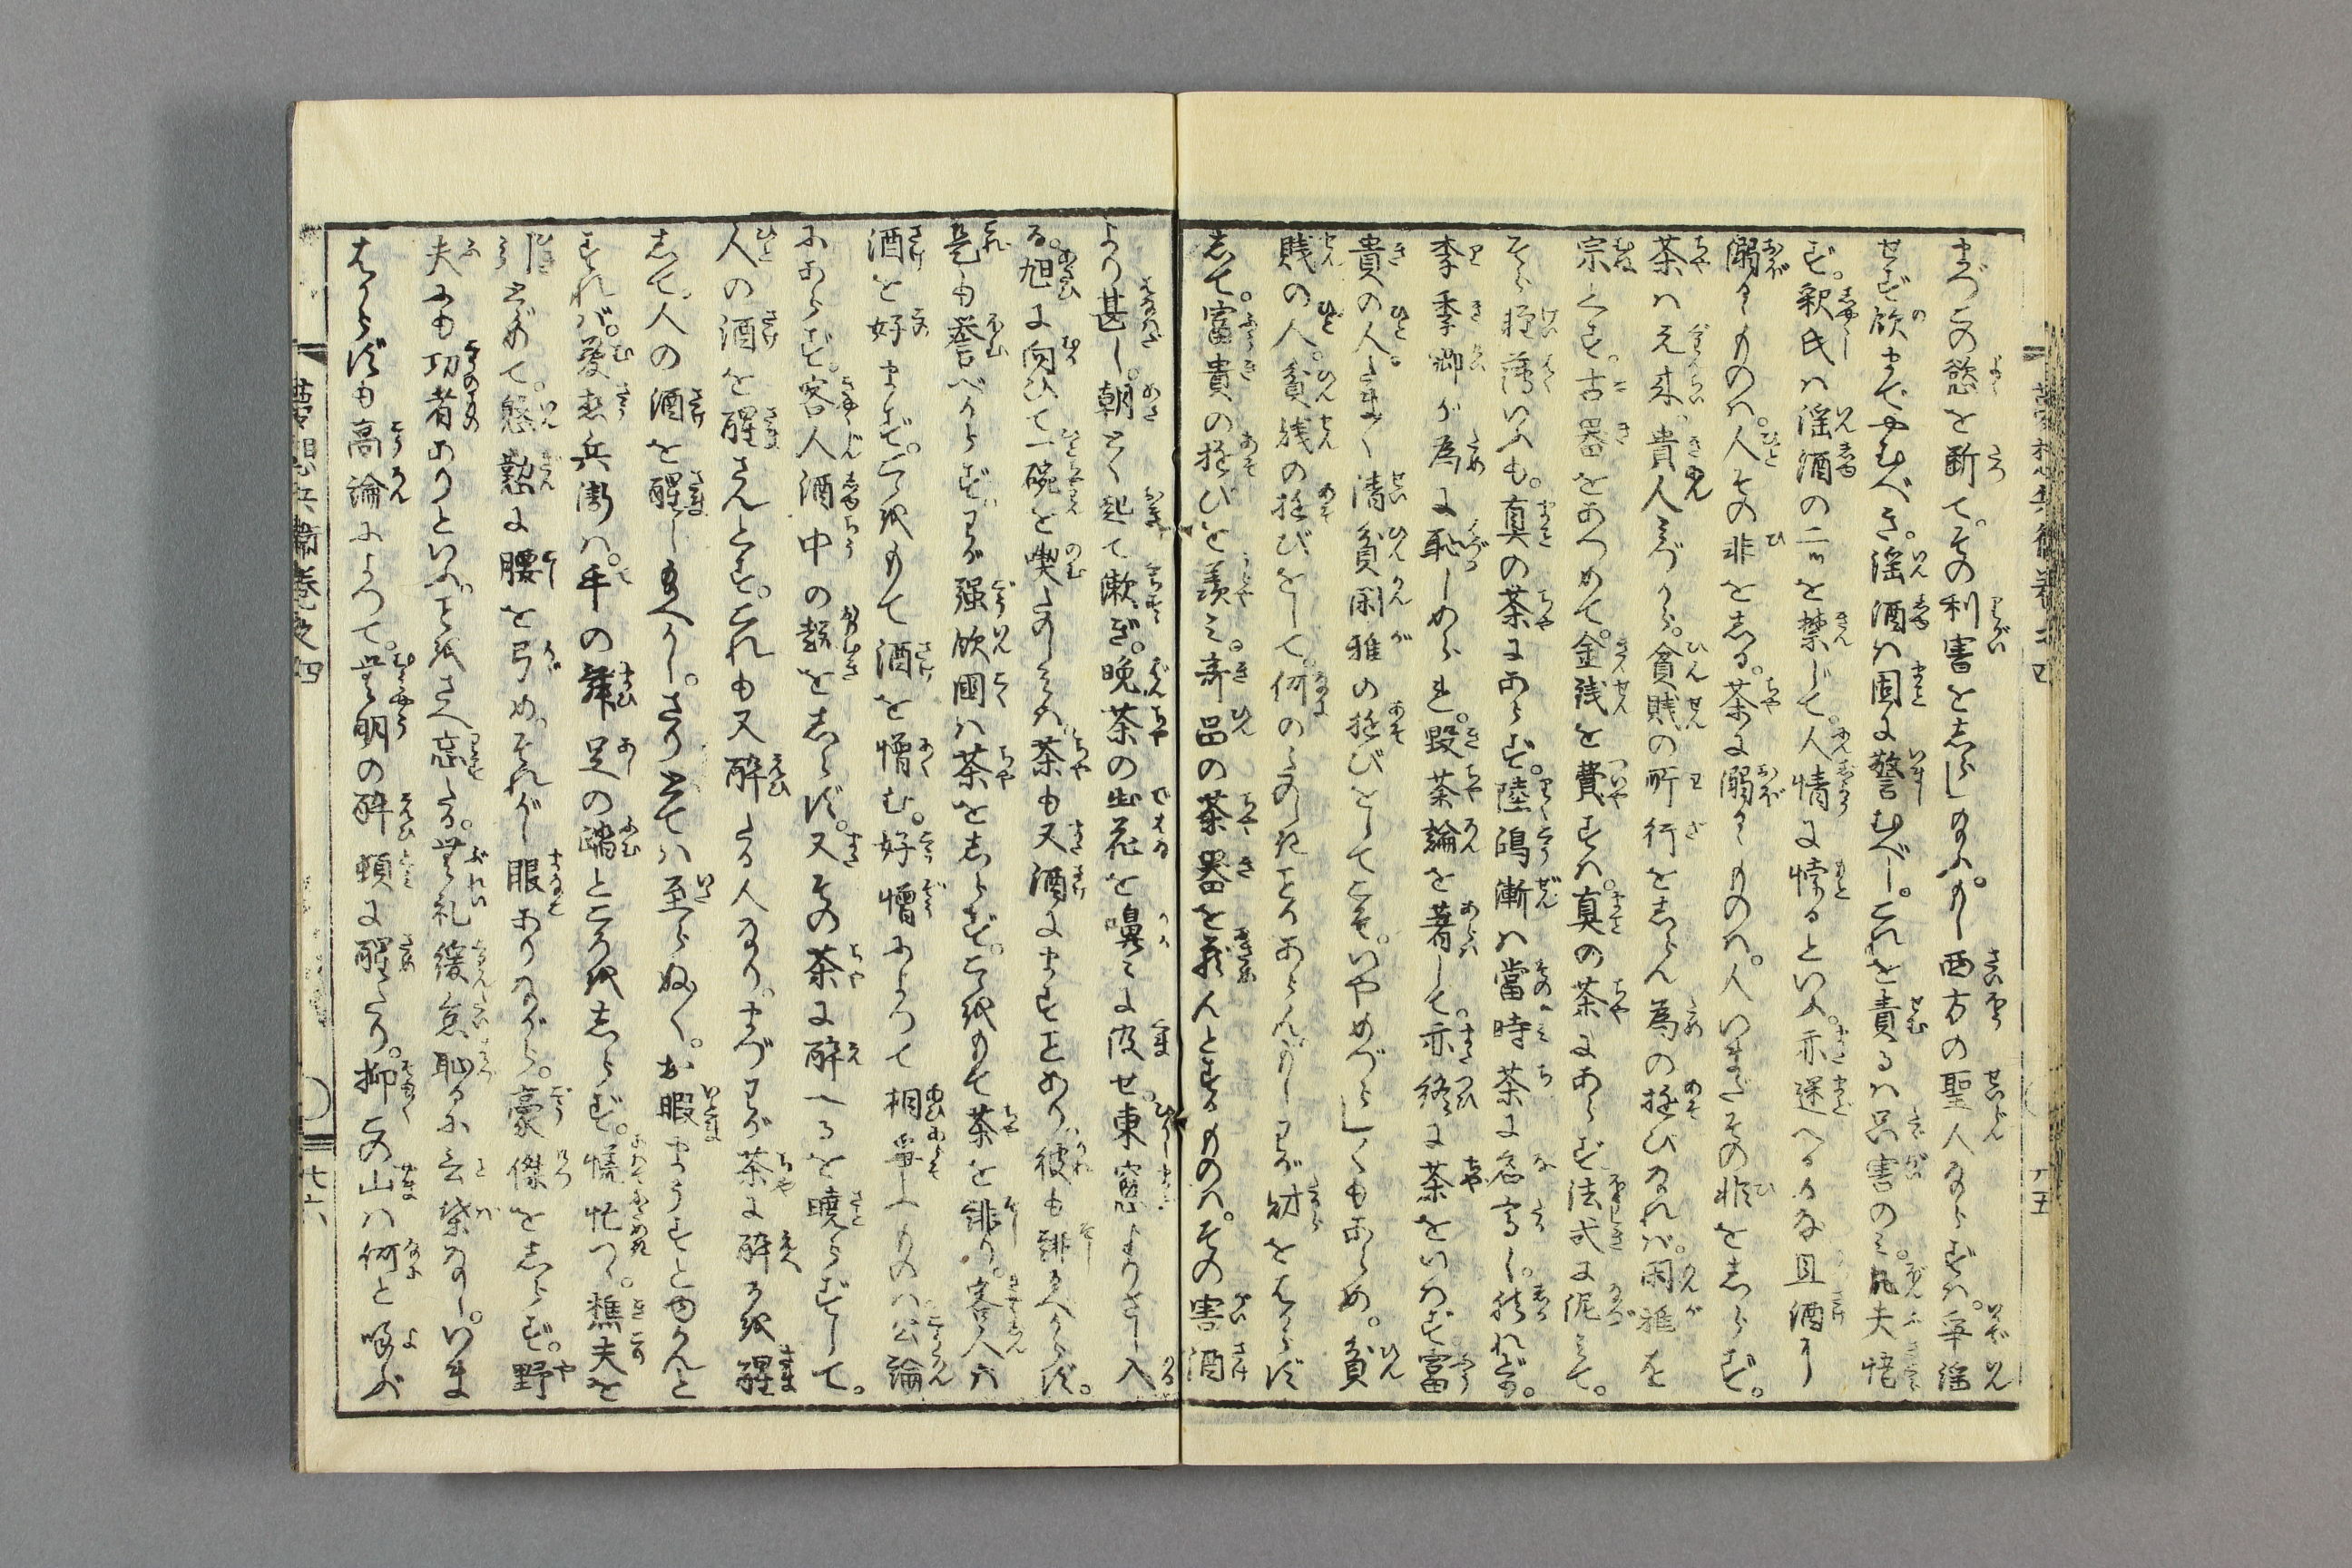 まづこの慾を断て。その利害をしらしめ給ふ。もし西方の聖人ならずは。争淫
せず飲までやむべき。淫酒は固に警むべし。これを責るは只害のみ。凡夫悟
ず。釈氏は淫酒の二ツを禁じて。人情に悖るといふ。亦迷へるかな且酒に
溺るゝものは。人その非をしる。茶に溺るゝものは。人いまだその非をしらず。
茶は元来。貴人みづから。貧賤の所行をしらん為の遊びなれば。閑雅を
宗とす。古器をあつめて。金銭を費すは。真の茶にあらず法式に泥みて。
そら軽薄いふも。真の茶にあらず。陸鴻漸は當時茶に名高し。然れども。
李季卿が為に恥しめられ。毀茶論を著して。亦終に茶をいはず富
貴の人。しばらく清貧閑雅の遊びをしてこそ。いやめづらし〳〵もあらめ。貧
賎の人。貧賎の遊びをして。何のたのしきことかあらん。もしわが財をはからず
して。富貴の遊びを羨み。奇品の茶器を翫んとするものは。その害酒
より甚し。朝とく起て漱ぎ。晩茶の出花を鼻に浸せ。東窓よりさし入
る。旭に向ひて一碗を喫たのしみは。茶も又酒にますことあり。彼も誹るべからず。
是も誉べからず。わが強飲國は茶をしらず。こゝをもて茶を誹り。客人は
酒を好まず。こゝをもて酒を憎む。好憎によつて相争ふものは公論
にあらず。客人酒中の趣をしらず。又その茶に酔へるを暁らずして。
人の酒を醒さんとす。これも又酔たる人なり。まづわが茶に酔るを醒
して。人の酒を醒し給へかし。さりとては至らぬ〳〵。お暇まうすとゆかんと
すれば。夢想兵衛は。手の舞足の踏ところをしらず。慌忙つゝ。樵夫を
引とゞめて。慇懃に腰を弓め。それがし眼ありながら。豪傑をしらず。野
夫にも功者ありといふ。ことをさへ忘たる。無礼緩怠恥るに言葉なし。いま
はからずも高論によつて。無明の酔頓に醒たり。抑この山は何と喚ぶ
夢想兵衛巻之四
七六